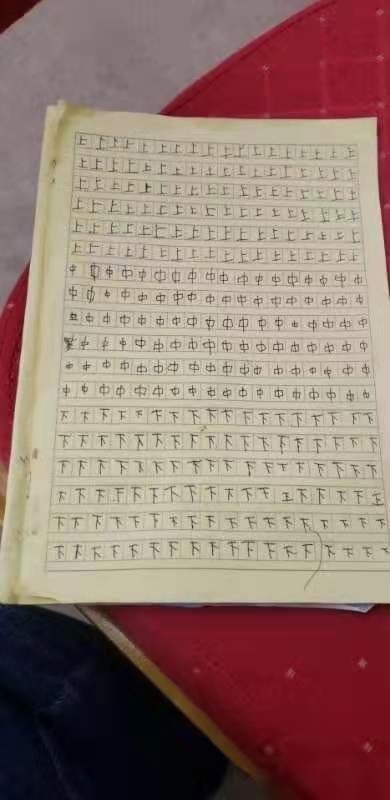 上上上上上上上上上上上上上上上上上上
上上上上上上上上上上上上上上上上上上
上上上上上上上上上上上上上上上上上上
上上上上上上上上上上上上上上上上上上
上上上上上上上上上上上上上上上上上上
上上上上上上上上上上上上上上上上上上
中中中中中中中中中中中中中中中中中中
中中中中中中中中中中中中中中中中中中
中中中中中中中中中中中中中中中中中中
中中中中中中中中中中中中中中中中中
中中中中中中中中中中中中中中中中中中
中中中中中中中中中中中中中中中中中中
下下下下下下下下下下下下下下下下下下
下下下下下下下下下下下下下下下下下下
下下下下下下下下下下下下下下下下下下
下下下下下下下下下下下下下下下下
下下下下下下下下下下下下下下下下下下
下下下下下下下下下下下下下下下下下下